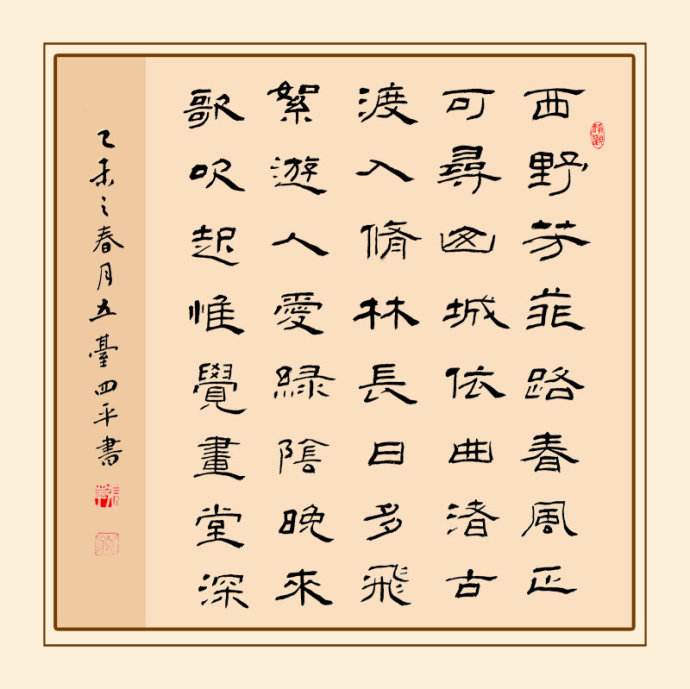 西野芳菲路春風正
可尋山城依曲渚古
渡入脩林長日多飛
絮遊人愛緑陰晚來
歌吹起惟覺畫堂深
乙未之春月五臺四平書